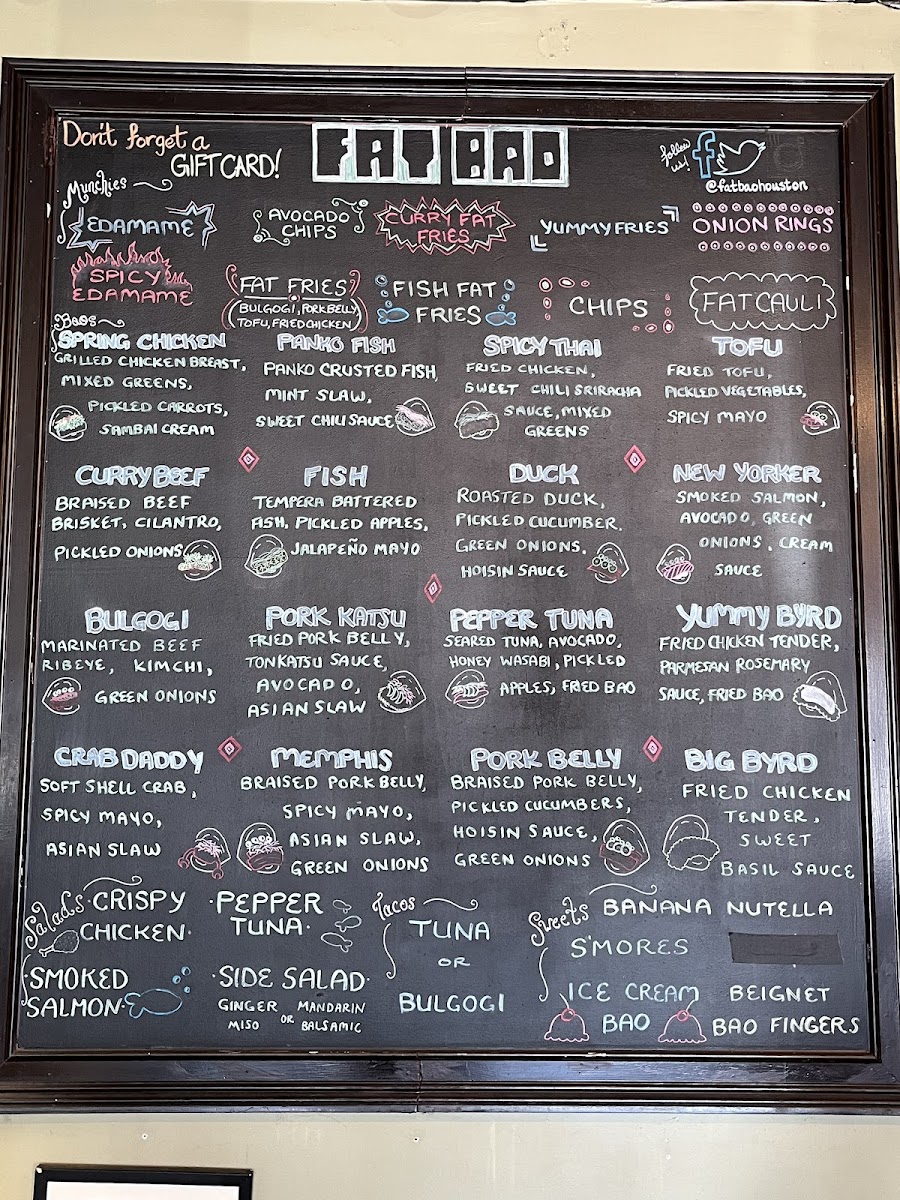 Don't forget a
GIFT CARD!
FAT BAO
follow us!
@fatbaohouston
Munchies
EDAMAME
AVOCADO
CHIPS
CURRY FAT
FRIES
YUMMY FRIES
ONION RINGS
SPICY
EDAMAME
FAT FRIES
BULGOGI, PORK BELLY
TOFU, FRIED CHICKEN
FISH FAT
FRIES
CHIPS
FAT CAULI
Baos
SPRING CHICKEN
GRILLED CHICKEN BREAST,
MIXED GREENS,
PICKLED CARROTS,
SAMBAI CREAM
PANKO FISH
PANKO CRUSTED FISH,
MINT SLAW,
SWEET CHILI SAUCE
SPICY THAI
FRIED CHICKEN,
SWEET CHILI SRIRACHA
SAUCE, MIXED
GREENS
TOFU
FRIED TOFU,
PICKLED VEGETABLES,
SPICY MAYO
CURRY BEEF
BRAISED BEEF
BRISKET, CILANTRO,
PICKLED ONIONS
FISH
TEMPERA BATTERED
FISH, PICKLED APPLES,
JALAPEÑO MAYO
DUCK
ROASTED DUCK,
PICKLED CUCUMBER.
GREEN ONIONS.
HOISIN SAUCE
NEW YORKER
SMOKED SALMON,
AVOCADO, GREEN
ONIONS, CREAM
SAUCE
BULGOGI
MARINATED BEEF
RIBEYE, KIMCHI,
GREEN ONIONS
PORK KATSU
FRIED PORK BELLY,
TONKATSU SAUCE,
AVOCADO,
ASIAN SLAW
PEPPER TUNA
SEARED TUNA, AVOCADO,
HONEY WASABI, PICKLED
APPLES, FRIED BAO
YUMMY BYRD
FRIED CHICKEN TENDER,
PARMESAN ROSEMARY
SAUCE, FRIED BAO
CRAB DADDY
SOFT SHELL CRAB,
SPICY MAYO,
ASIAN SLAW
MEMPHIS
BRAISED PORK BELLY,
SPICY MAYO,
ASIAN SLAW,
GREEN ONIONS
PORK BELLY
BRAISED PORK BELLY,
PICKLED CUCUMBERS,
HOISIN SAUCE,
GREEN ONIONS
BIG BYRD
FRIED CHICKEN
TENDER,
SWEET
BASIL SAUCE
Salads
·CRISPY
CHICKEN·
·PEPPER
TUNA·
·SMOKED
SALMON·
·SIDE SALAD·
GINGER MISO OR MANDARIN BALSAMIC
Tacos
TUNA
OR
BULGOGI
Sweets
BANANA NUTELLA
S'MORES
ICE CREAM
BAO
BEIGNET
BAO FINGERS